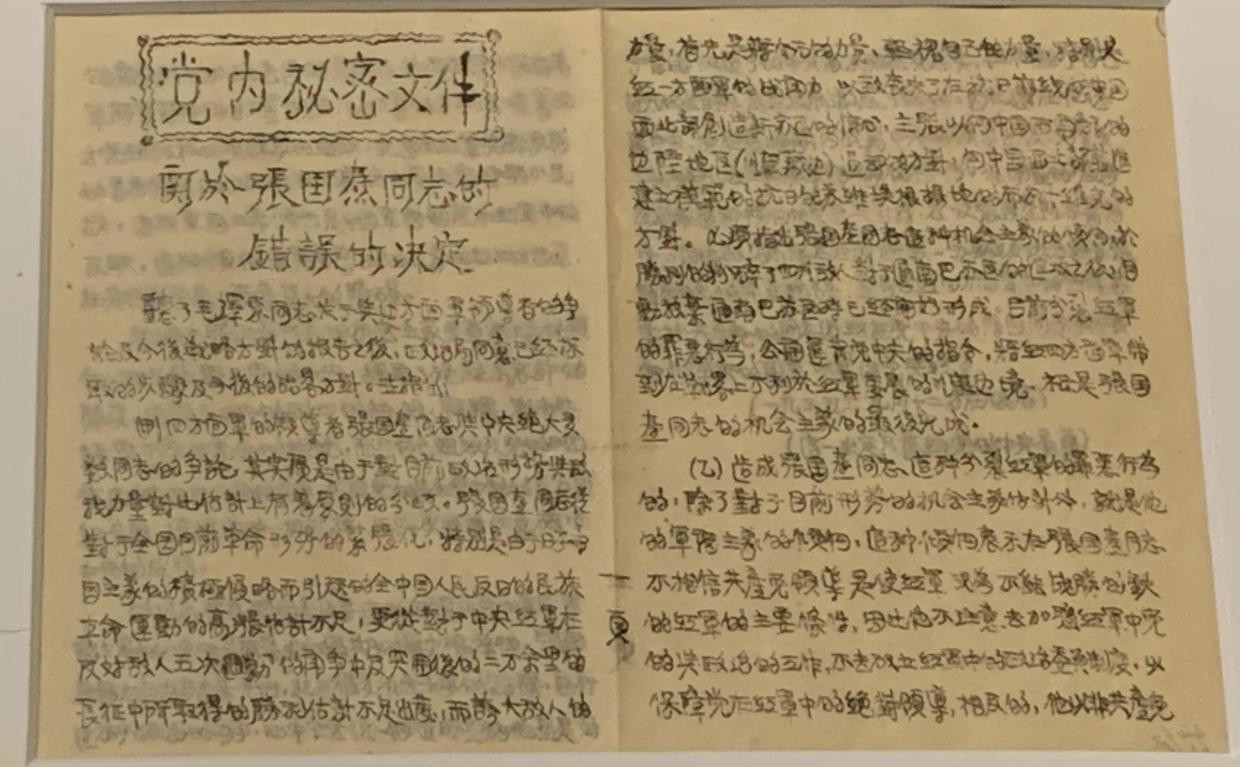 党内祕密文件
関於張国燾同志的
錯誤的决定
听了毛澤東同志关于与红四方面軍領導者的爭
論及今後战略方針的报告之後，政治局同意已经採
取的步驟及今後的战畧方針。並指出
四方面軍的领導者張国燾同志与中央絕大多
数同志的争論，其实質是由于對目前政治形势与敌
我力量對比估計上有着原則的分歧。張国燾同志從
對于全国目前革命形势的緊張化，特别是由于日本帝
国主義的積極侵略而引起的全中国人民反日的民族
革命運動的高漲估計不足，更從對于中央红軍在
反对敌人五次圍勦的鬥争中及突圍後的二万余里的
長征中所取得的勝利估計不足出發，而誇大敌人的
力量，首先是蔣介石的力量，輕視自己的力量，特别是
红一方面軍的战鬥力，以致丧失了在抗日前线的中国
西北部創造新苏区的信心，主張以向中国西南部的
边陲地区(川康藏边)退却的方針，向中国西北部前進
建立模範的抗日的苏維埃根據地的布尔什維克的
方針。必須指出張国燾同志這种机会主義的傾向，於
勝利的粉碎了四川敌人對于通南巴苏区的包攻之後，自
動放棄通南巴苏区時已经開始形成。目前分裂红軍
的罪悪行為，公開違背党中央的指令，將红四方面軍帶
到在战畧上不利於红軍發展的川康边境，祗是張国
燾同志的机会主義的最後完成。
(乙)造成張国燾同志這种分裂红軍的罪悪行為
的，除了對于目前形势的机会主義估計外，就是他
的軍閥主義的傾向，這种傾向表示在張国燾同志
不相信共產党領導是使红軍成為不能战勝的鉄
的红軍的主要條件，因此他不注意去加强红軍中党
的与政治的工作，不去确立红軍中的政治委員制度，以
保障党在红軍中的絕對領導，相反的，他以非共產党
一頁